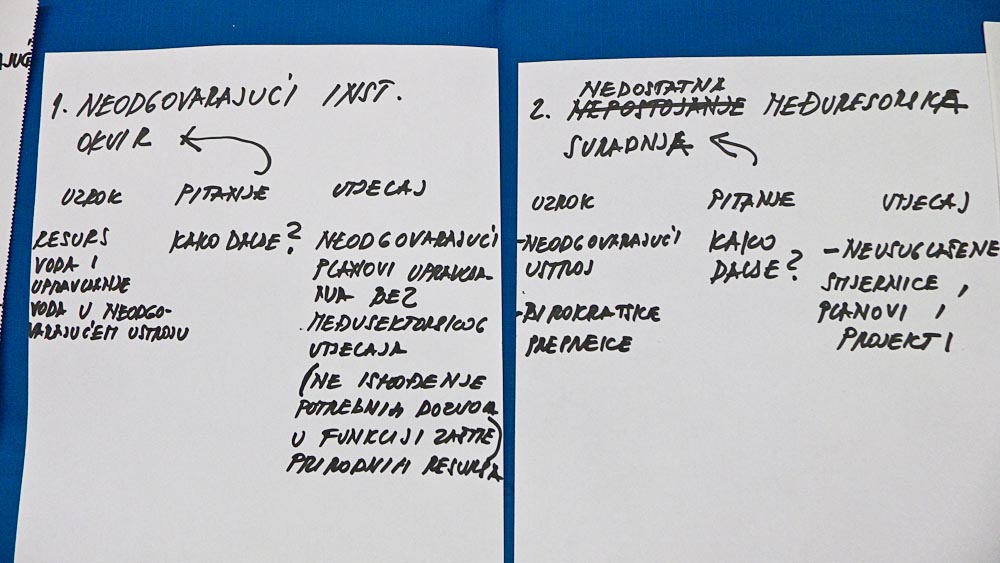 1. NEODGOVARAJUĆI INST.
OKVIR
UZROK PITANJE UTJECAJ
RESURS
VODA I
UPRAVLJANJE
VODA U NEODGO-
VARAJUĆEM USTROJU
KAKO DALJE?
NEODGOVARAJUĆI
PLANOVI UPRAVLJA-
NJA BEZ
MEĐUSEKTORSKOG
UTJECAJA
(NE ISHOĐENJE
POTREBNIH DOZVOLA
U FUNKCIJI ZAŠTITE
PRIRODNIH RESURSA)
NEDOSTATNA
2. NEPOSTOJANJE MEĐURESORSKA
SURADNJA
UZROK PITANJE UTJECAJ
-NEODGOVARAJUĆI
USTROJ
-BIROKRATSKE
PREPREKE
KAKO
DALJE?
-NEUSUGLAŠENE
SMJERNICE,
PLANOVI I
PROJEKTI